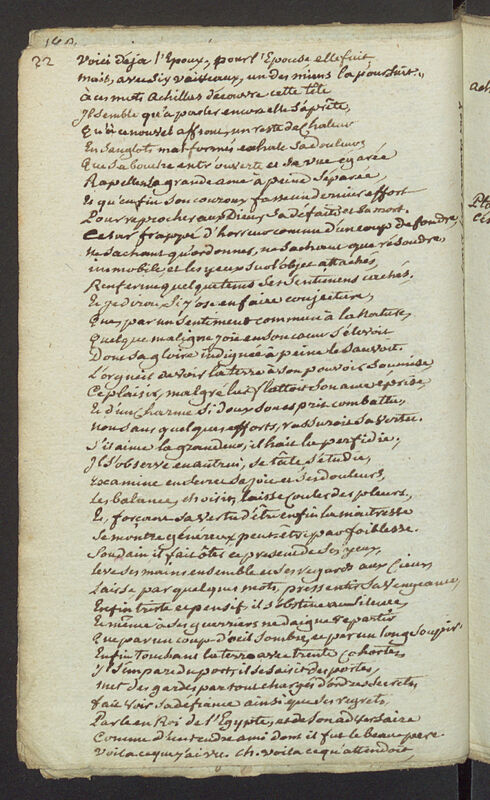 22 Voici déja l'Epoux, pour l'Epouse elle fuit
mais, avec six vaisseaux, un des miens la poursuit.,
à ces mots Achillas découvre cette tête
Il semble qu'a parler encor elle s'aprête,
Qu'à ce nouvel affront, un reste de chaleur
En sanglots mal formés exhale sa douleur,
Que sa bouche entr'ouverte et sa vue égarée
Rapellent sa grande ame à peine séparée
Et qu'enfin son couroux fasse un dernier effort
Pour reprocher aux Dieux sa défaite et sa mort.
César frappé d'horreur comme d'un coup de foudre,
ne sachant qu'ordonner, ne sachant que résoudre,
immobile, et les yeux sur l'objet attachés,
Renferme quelque tems ses sentimens cachés.
Et je dirai, si j'ose en faire conjecture,
Que, par un sentiment commun à la nature,
Quelque maligne joie en son cœur s'élevoit
Dont sa gloire indignée à peine le sauvoit.
L'orgueil de voir la terre à son pouvoir soumise
Ce plaisir, malgré lui, flattoit son ame éprise,
Et d'un charme si doux son esprit combattu,
non sans quelques efforts, rassuroit sa vertu.
S'il aime la grandeur, il hait la perfidie.
Il s'observe en autrui, se tâte, s'étudie,
Examine en secret sa joie et ses douleurs,
Les balance, choisit, laisse couler des pleurs,
Et, forçant sa vertu d'être enfin la maitresse
Se montre généreux peut-être par foiblesse.
Soudain il fait ôter ce présent de ses yeux,
leve ses mains ensemble et ses regards aux Cieux
Laisse par quelques mots, pressentir sa vengeance,
Enfin triste et pensif il s'obstine au silence,
Et même à ses guerriers ne daigne repartir
Que par un coup d'œil sombre, et par un long soupir.
Enfin touchant la terre avec trente cohortes,
Il s'empare du port, il se saisit des portes,
met des gardes partout, chargés d'ordres secrets,
fait voir sa défiance ainsi que ses regrets,
Parle en Roi de l'Egypte, et de son adversaire
Comme d'un tendre ami dont il fut le beaupere
Voila ce que j'ai vu. ch. voila ce qu'attendoit,